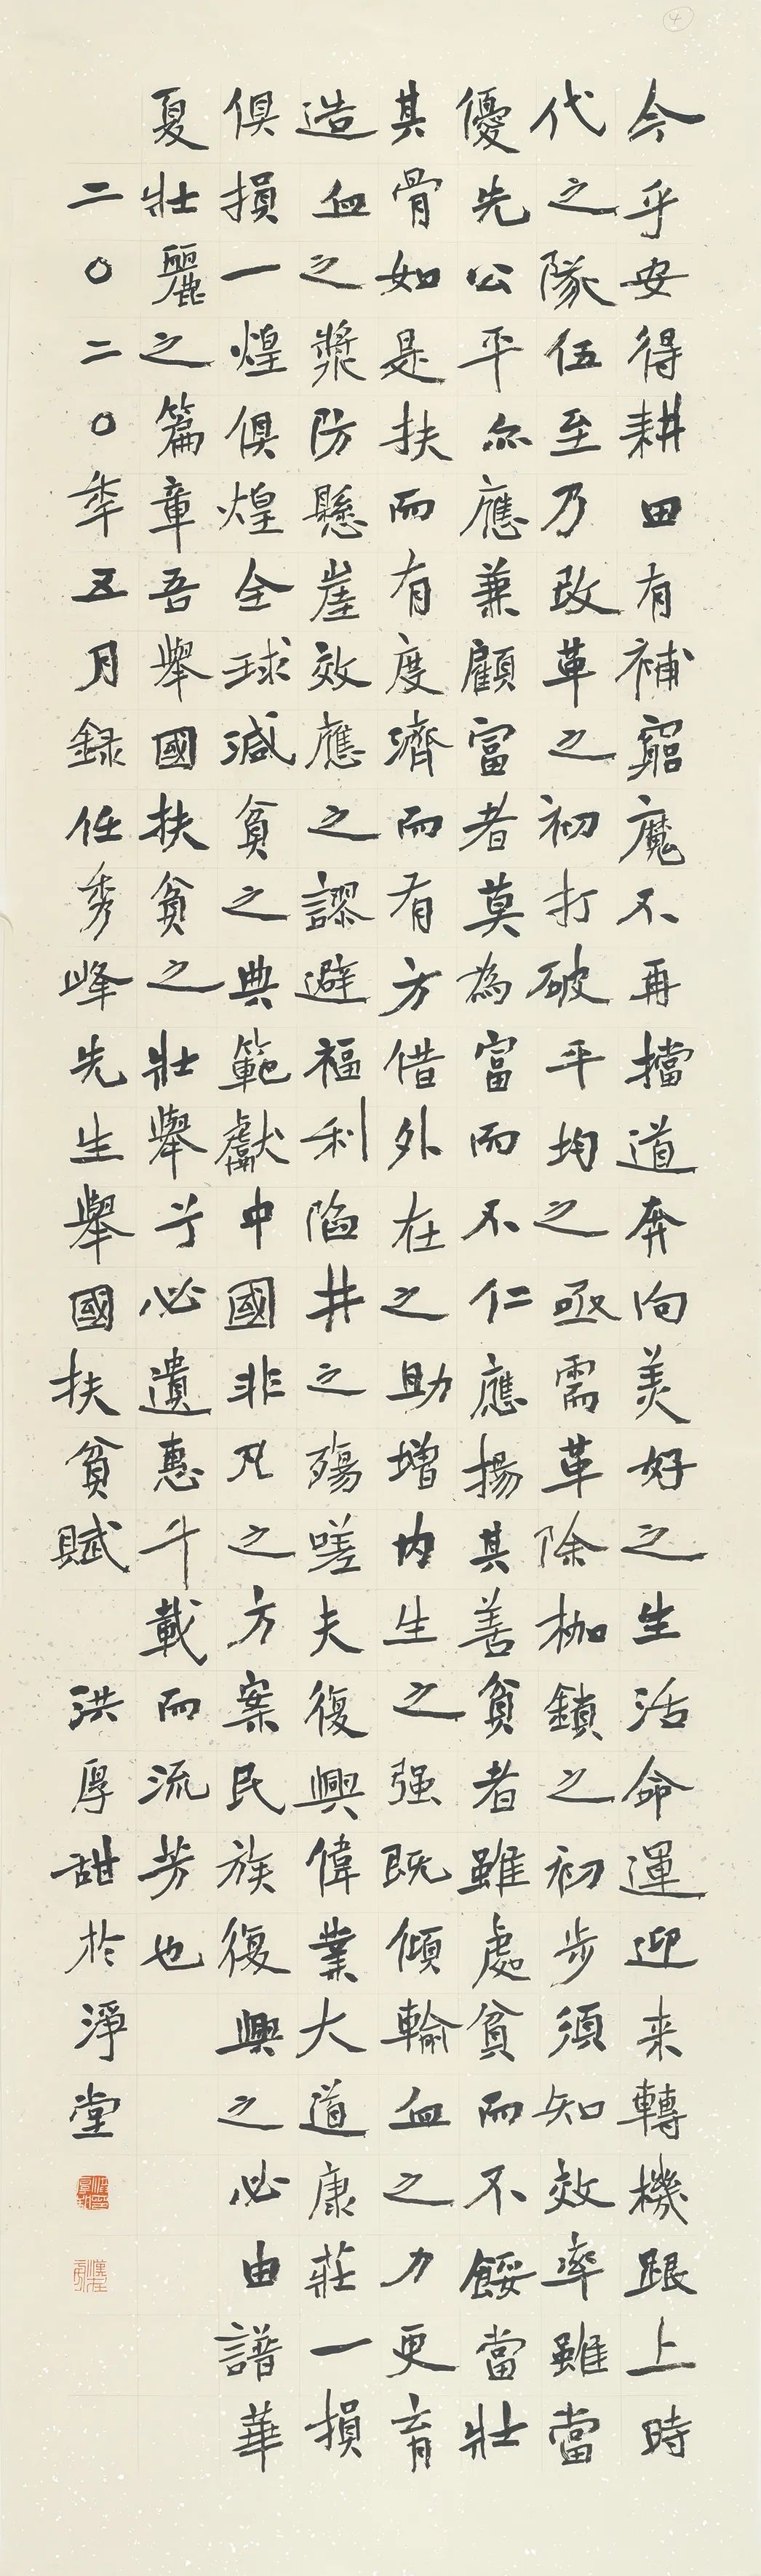 今乎安得耕田有補窮魔不再擋道奔向美好之生活命運迎来轉機跟上時
代之隊伍至乃改革之初打破平均之亟需革除枷鎖之初步須知效率雖當
優先公平亦應兼顧富者莫為富而不仁應揚其善貧者雖處貧而不餒當壯
其骨如是扶而有度濟而有方借外在之助增内生之强既傾輸血之力更育
造血之漿防懸崖效應之謬避福利陷井之殤嗟夫復興偉業大道康莊一損
俱損一煌俱煌全球减貧之典範獻中國非凡之方案民族復興之必由譜華
夏壯麗之篇章吾舉國扶貧之壯舉兮必遺惠千載而流芳也
二〇二〇年五月録任秀峰先生舉國扶貧賦 洪厚甜於淨堂